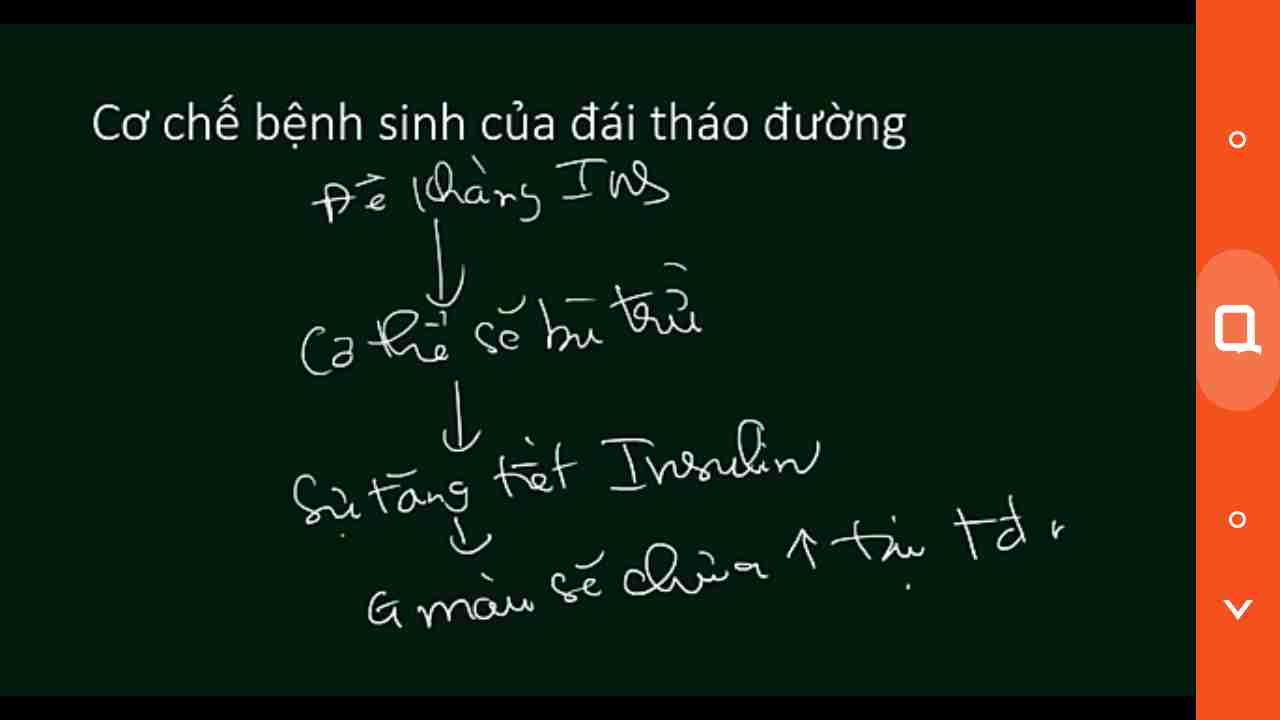 Cơ chế bệnh sinh của đái tháo đường
Đề kháng Ins
Cơ thể sẽ bù trừ
Sự tăng tiết Insulin
G máu sẽ chưa ↑ tại